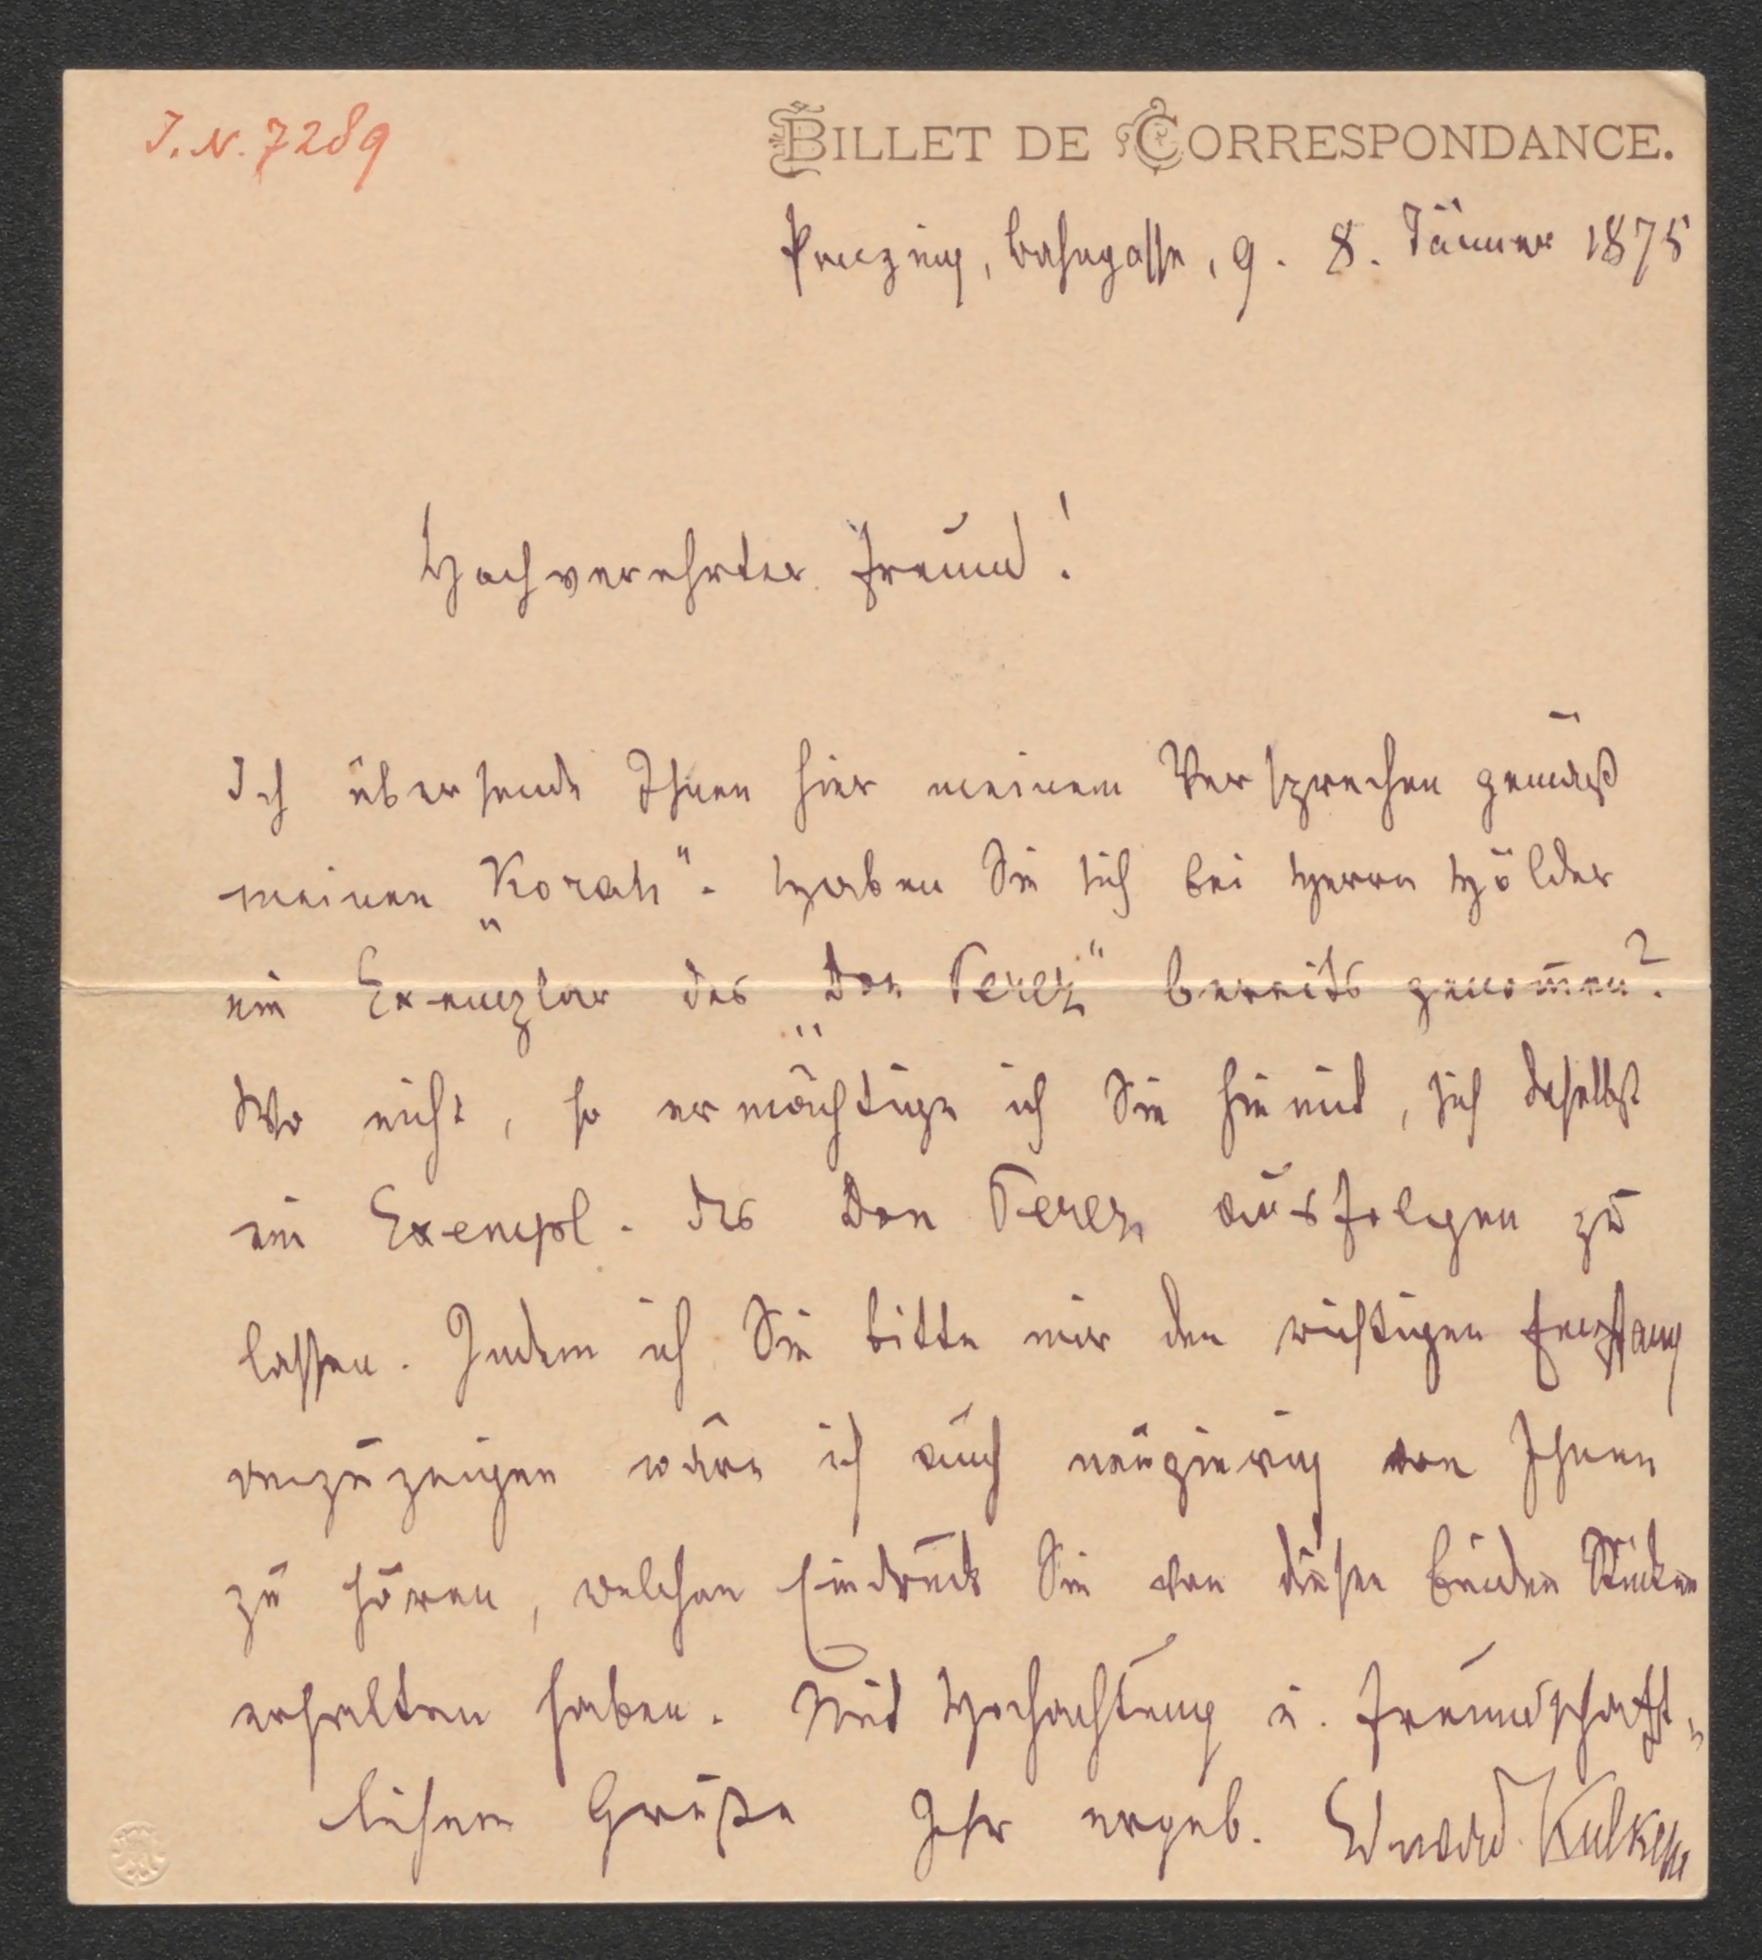 I. N. 7289
BILLET DE CORRESPONDANCE.
Penzing, Bahngasse, 9. 8. Jänner 1875
Hochverehrter Freund!
Ich übersende Ihnen hier meinem Versprechen gemäß
meinen „Korah“. Haben Sie sich bei Herrn Hölder
ein Exemplar des „Don Perez“ bereits genom̄en?
Wo nicht, so ermächtige ich Sie hiemit, sich daselbst
ein Exempl. des Don Perez ausfolgen zu
lassen. Indem ich Sie bitte mir den richtigen Empfang
anzuzeigen wäre ich auch neugierig von Ihnen
zu hören, welchen Eindruck Sie von diesen beiden Stücken
erhalten haben. Mit Hochachtung u. freundschaft-
lichem Gruße Ihr ergeb. Eduard Kulke